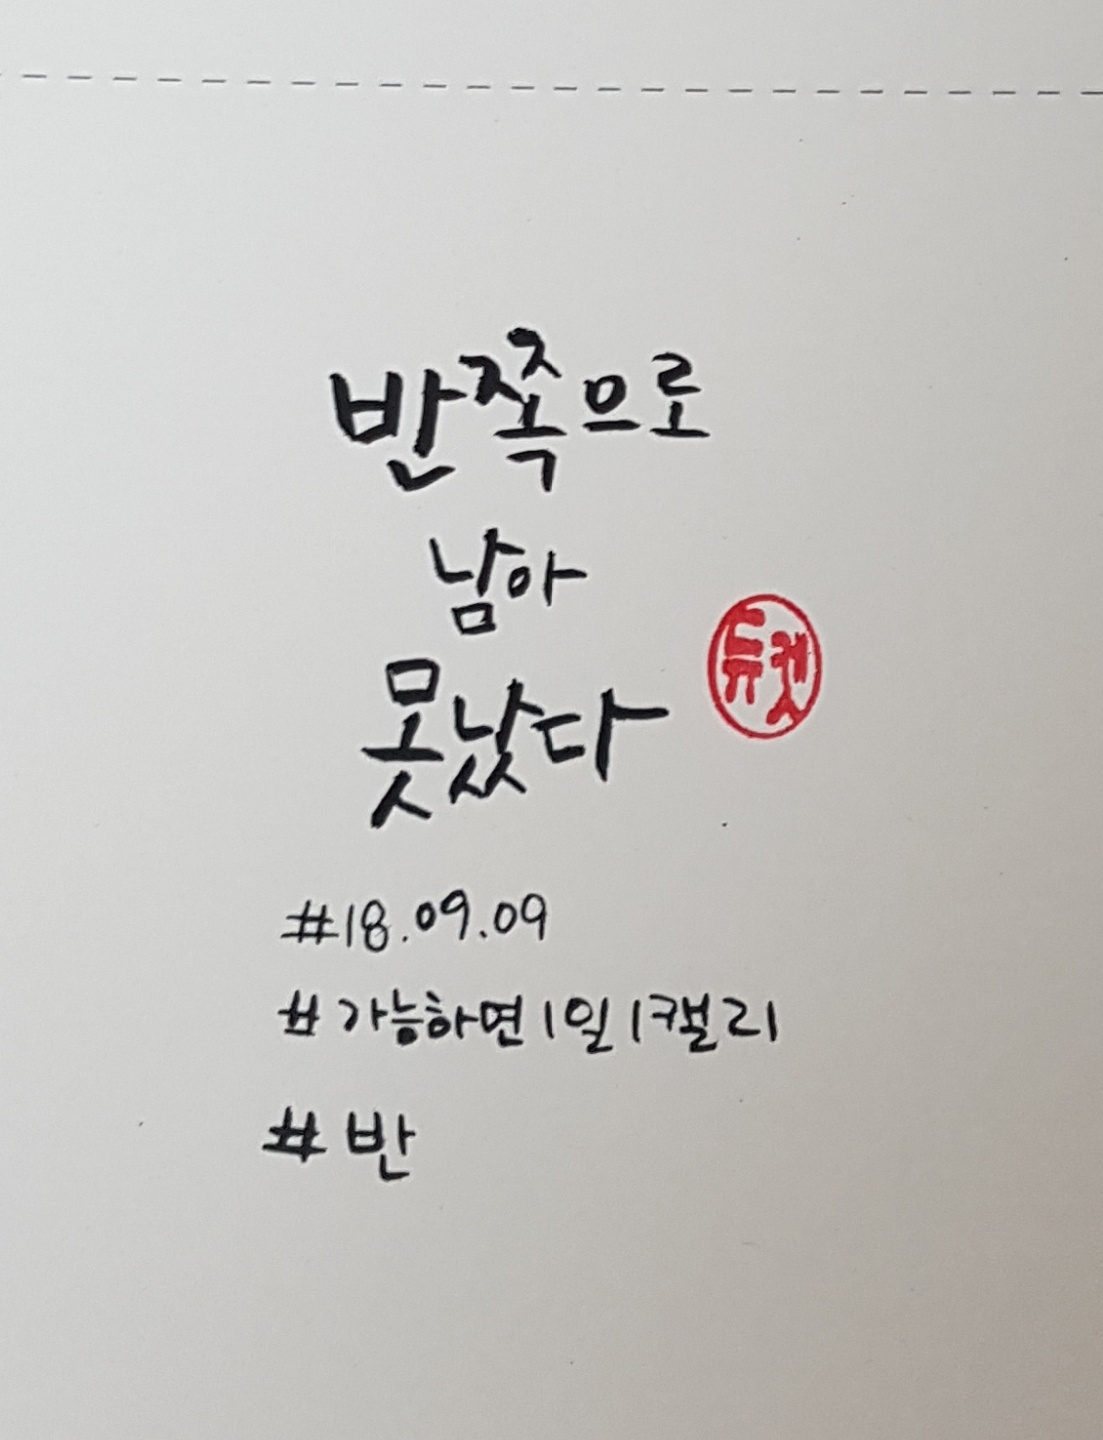 반쪽으로
남아
못났다
#18.09.09
#가능하면1일1캘리
#반